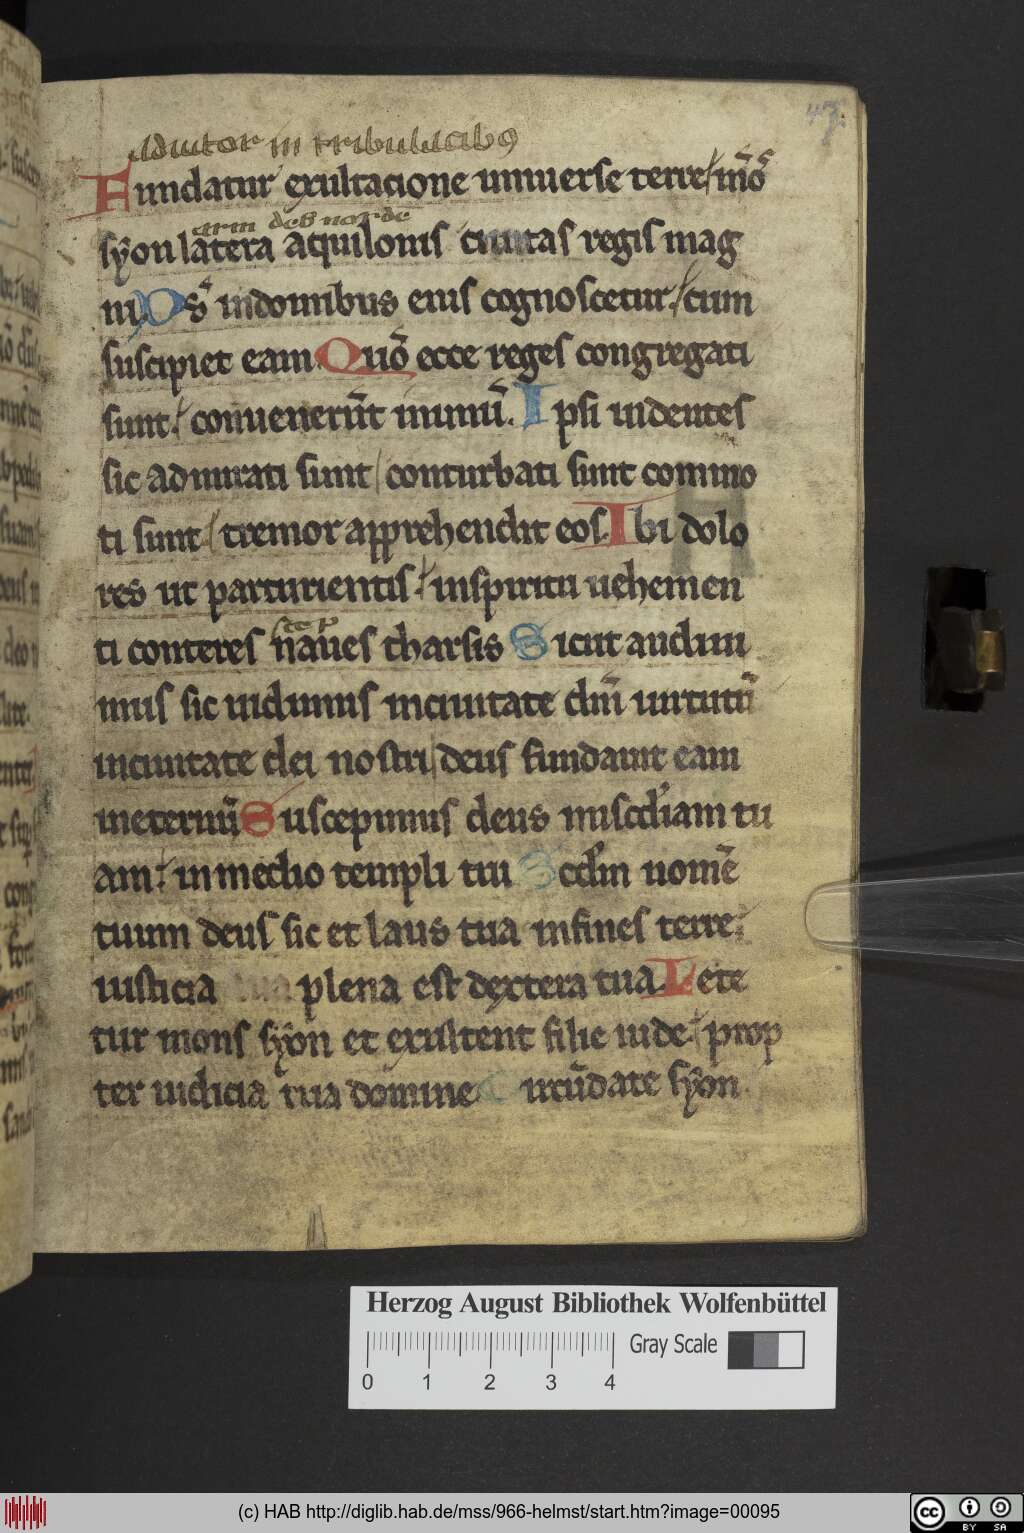 47.
Adiutor in tribulacibꝯ
Fundatur exultacione uniuerse terre mōs
arm des norde
syon latera aquilonis ciuitas regis mag
ni. Ds̄ indomibus eius cognoscetur. cum
suscipiet eam. Quō ecce reges congregati
sunt. conuenerūt inunū. Ipsi uidentes
sic admirati sunt conturbati sunt commo
ti sunt tremor apprehendit eos. Ibi dolo
res ut parturientis. inspiritu uehemen
ti conteres naues tharsis Sicut audiui
mus sic uidimus inciuitate dnī uirtutū
inciuitate dei nostri deus fundauit eam
ineternū Suscepimus deus misc̄diam tu
am. inmedio templi tui Scd̄m nomē
tuum deus sic et laus tua infines terre
iusticia tua plena est dextera tua. Lete
tur mons syon et exultent filie iude. prop
ter iudicia tua domine Circūdate syon
Herzog August Bibliothek Wolfenbüttel
0 1 2 3 4
Gray Scale
(c) HAB http://diglib.hab.de/mss/966-helmst/start.htm?image=00095
cc BY SA